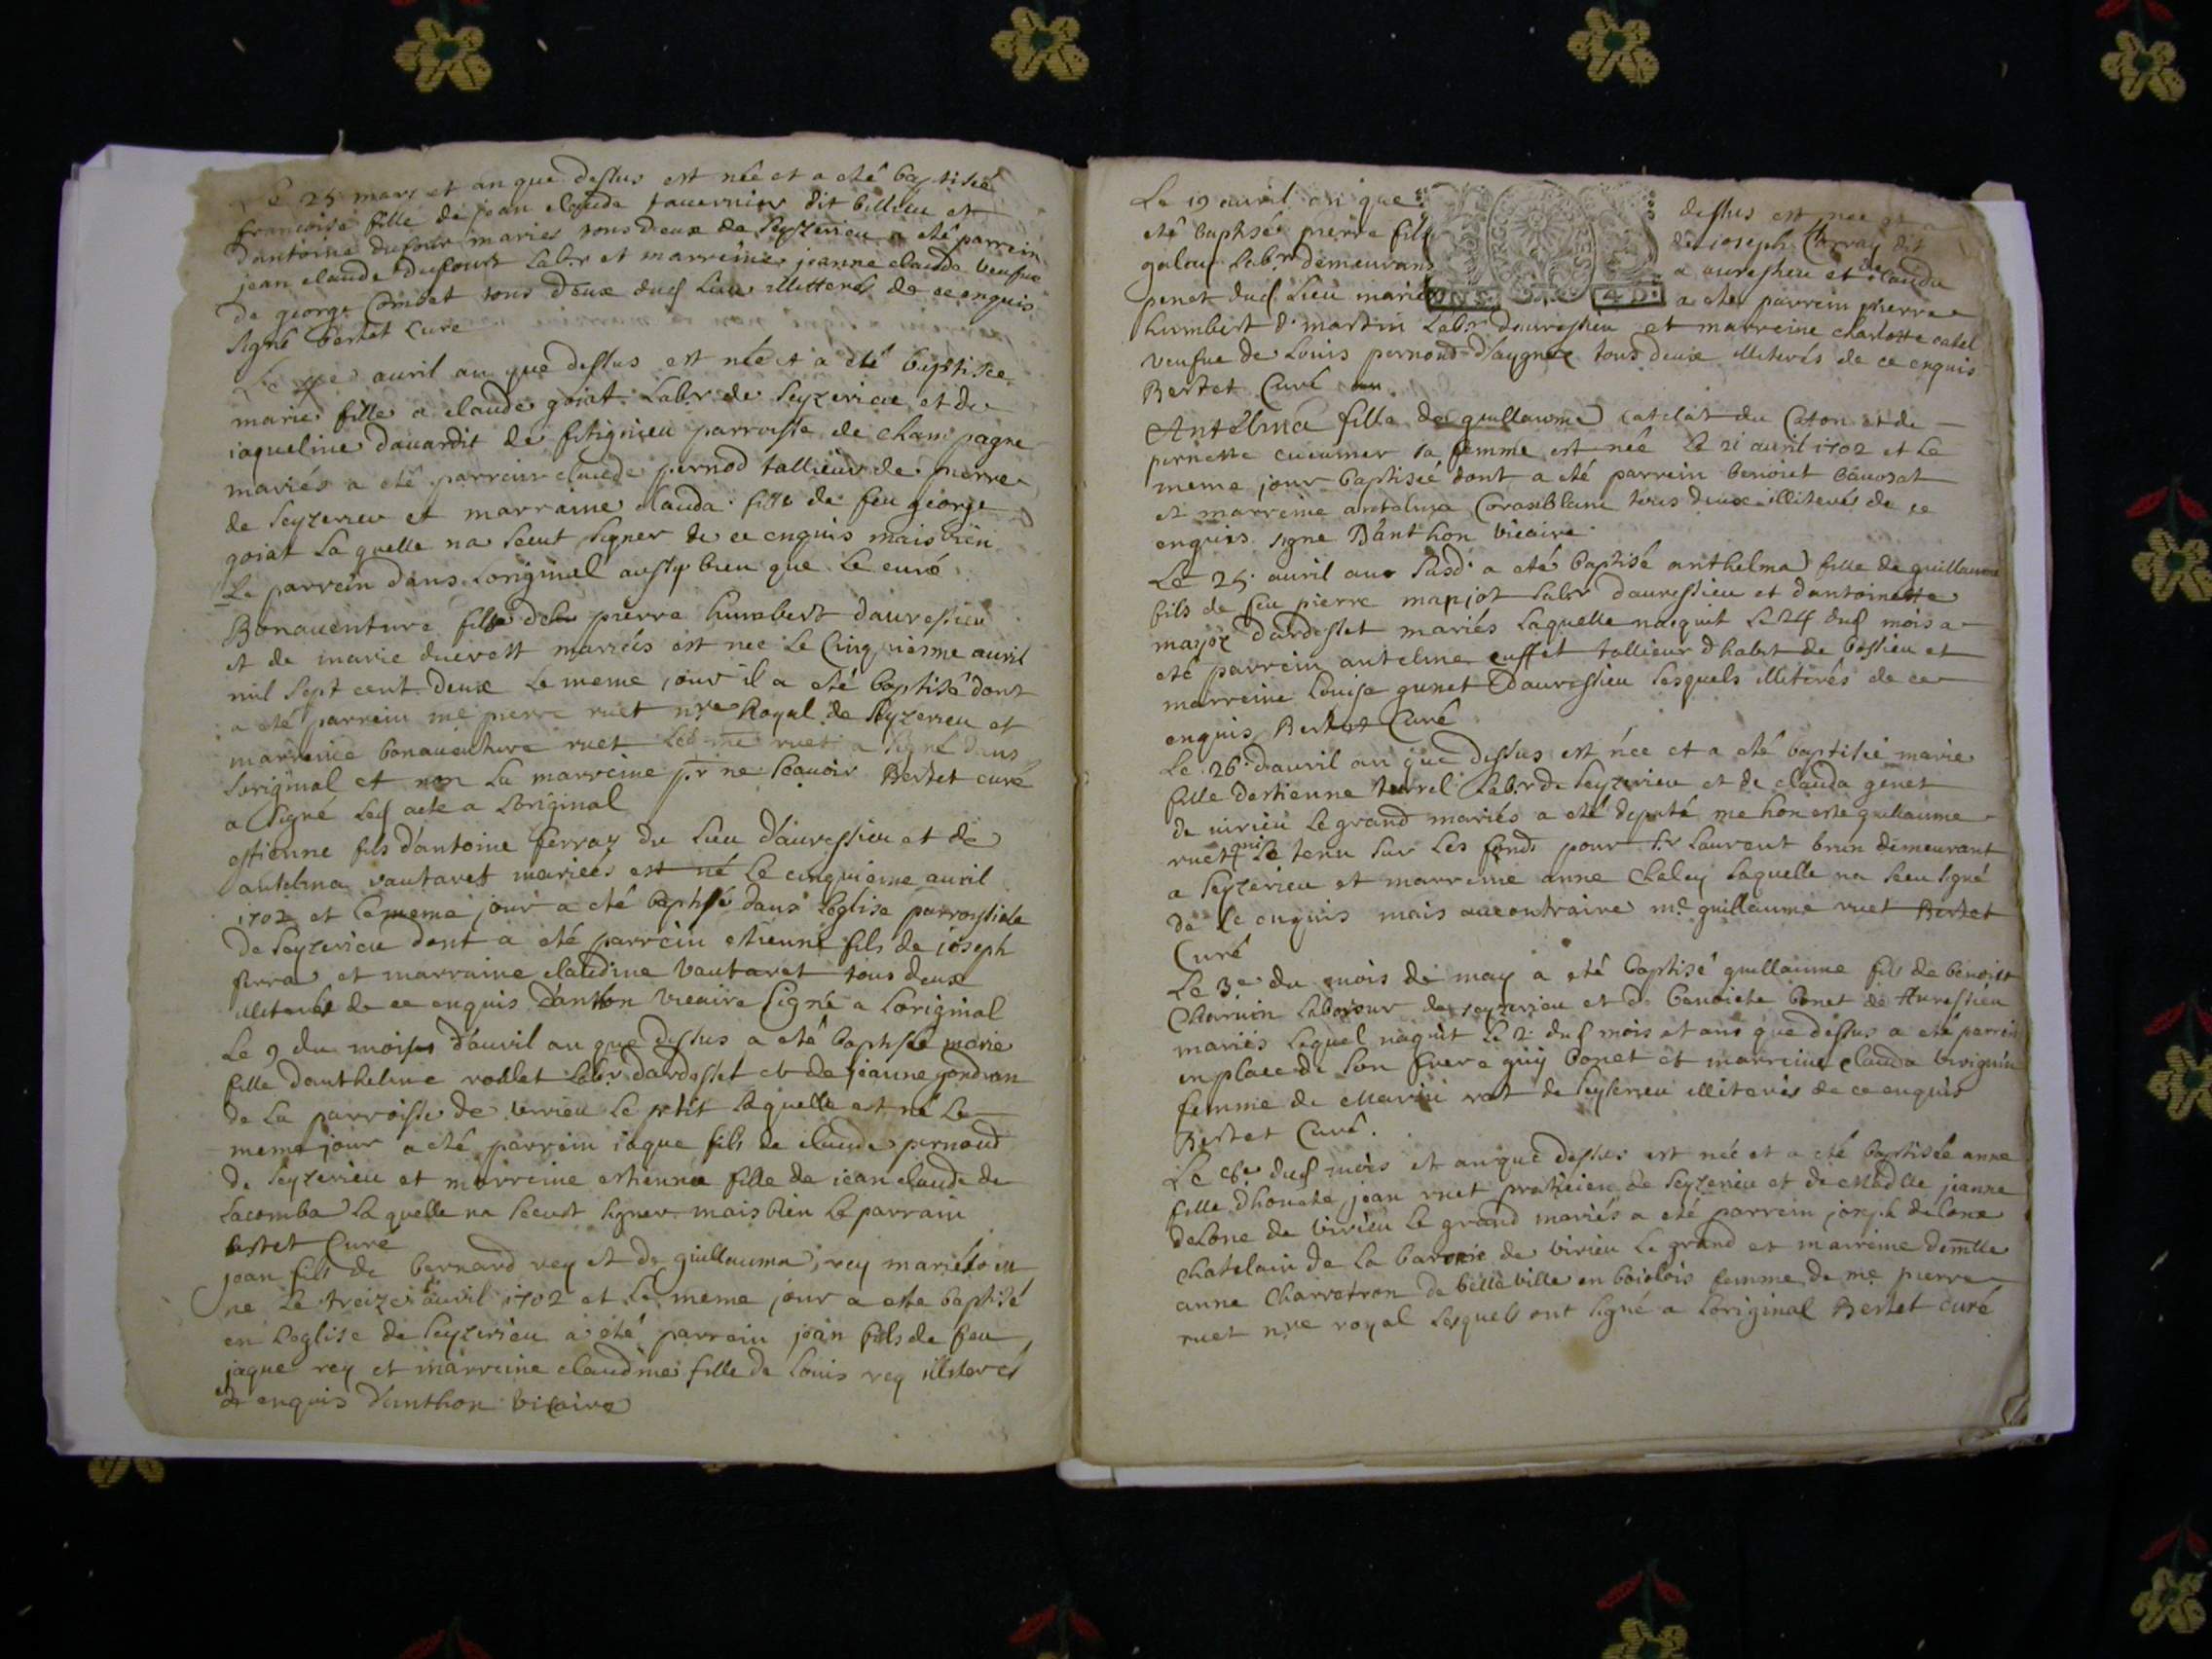 Le 25 mars et an que dessus est née et a eté baptisée
francoise fille de jean claude tavernier dit billieu et
dantoine dufour mariés tous deux de Seyzerieu a eté parrein
jean claude dufour Labr et marreine jeanne clauda veufue
de george Combet tous deux dud lieu illiterés de ce enquis
signé Bertet Curé
Le avril an que dessus est née et a été baptisée
marie fille a claude goiat Labr de Seyzerieu et de
iaqueline davardit de fitignieu parroisse de champagne
mariés a eté parrein claude pernod tallieur de pierre
de Seyzerieu et marraine clauda fille de feu george
goiat laquelle na sceut signer de ce enquis mais bien
Le parrein dans loriginal aussy bien que Le curé
Bonaventure fils de pierre humbert d'avressieu
et de marie ducrest mariés est née Le Cinquiesme avril
mil sept cent deux Le meme jour il a eté baptisé dont
a eté parrein me pierre ruet nre Royal de Seyzerieu et
marreine bonaventure ruet Led me ruet a signé dans
loriginal et non La marreine pr ne scavoir Bertet curé
a signé led acte a loriginal
estienne fils d'antoine ferraz du lieu d'avressieu et de
antelma vautaret mariees est né Le cinquieme avril
1702 et le meme jour a eté baptisé dans leglise parroissiale
de Seyzerieu dont a eté parrein etienne fils de joseph
ferra et marraine claudine vautaret tous deux
illiterés de ce enquis Danthon vicaire signé a loriginal
Le 9 du mois d'avril an que dessus a eté baptisée marie
fille danthelme rollet Labr dardosset et de jeanne gondran
de La parroisse de virieu le petit laquelle est né Le
meme jour a eté parrein iaque fils de claude pernoud
de Seyzerieu et marreine estienna fille de iean claude de
Lacomba laquelle na sceust signer mais bien le parrain
Bertet Curé
jean fils de bernard rey et de guillauma rey mariés est
ne le treize avril 1702 et Le meme jour a este baptisé
en leglise de Seyzerieu a été parrein jean fils de feu
jaque rey et marreine claudine fille de Louis rey illiterés
de enquis D'anthon vicaire
Le 19 avril an que dessus est née et a
eté baptisé pierre fils de ioseph Charvay dit
galay Labr demeurant a avressieu et de clauda
penet dud lieu mariés a eté parrein pierre
humbert d. martin Labr davressieu et marreine charlotte catel
veufue de Louis pernoud d'aygnez tous deux illiterés de ce enquis
Bertet Curé
Antelma fille de guillaume catelat du Caton et de
pernette cucumer sa femme est née le 21 avril 1702 et le
meme jour baptisée dont a eté parrein benoiet bavosat
et marreine antelma Corasiblanc tous deux illiterés de ce
enquis signe D'anthon vicaire
Le 25 avril an susd a eté baptisé anthelma fille de guillaume
fils de feu pierre manjot Labr davressieu et dantoinette
mayoz dardosset mariés laquelle naequit Le 24 dud mois a
eté parrein antelme cuffet tallieur dhabit de bossieu et
marreine Louise gunet davressieu lesquels illiterés de ce
enquis Bertet Curé
Le 26 davril an que dessus est née et a eté baptisée marie
fille destienne turrel Labr de Seyzerieu et de clauda genet
de virieu le grand mariés a eté deputé me honeste guillaume
ruet qui la tenu sur les fonds pour Sr Laurent brun demeurant
a Seyzerieu et marreine anne Chaley laquelle na sceu signé
de ce enquis mais aucontraire me guillaume ruet Bertet
Curé
Le 3e du mois de may a eté baptisé guillaume fils de benoist
Charvin laboour de seyzerieu et de benoiete bonet de Avressieu
mariés lequel naquit le 2 dud mois et ans que dessus a eté parrein
en place de son frere guy bonet et marreine clauda brignin
femme de Marin rat de Seyserieu illiterés de ce enquis
Bertet Curé.
Le 6e dud mois et an que dessus est née et a eté baptisée anne
fille dhoneste jean ruet praticien de Seyzerieu et de Madlle jeanne
delone de virieu le grand mariés a eté parrein joseph delone
Chatelain de La baronie de virieu Le grand et marreine demlle
anne Charretron de belleville en baiolois femme de me pierre
ruet nre royal lesquels ont signé a loriginal Bertet curé